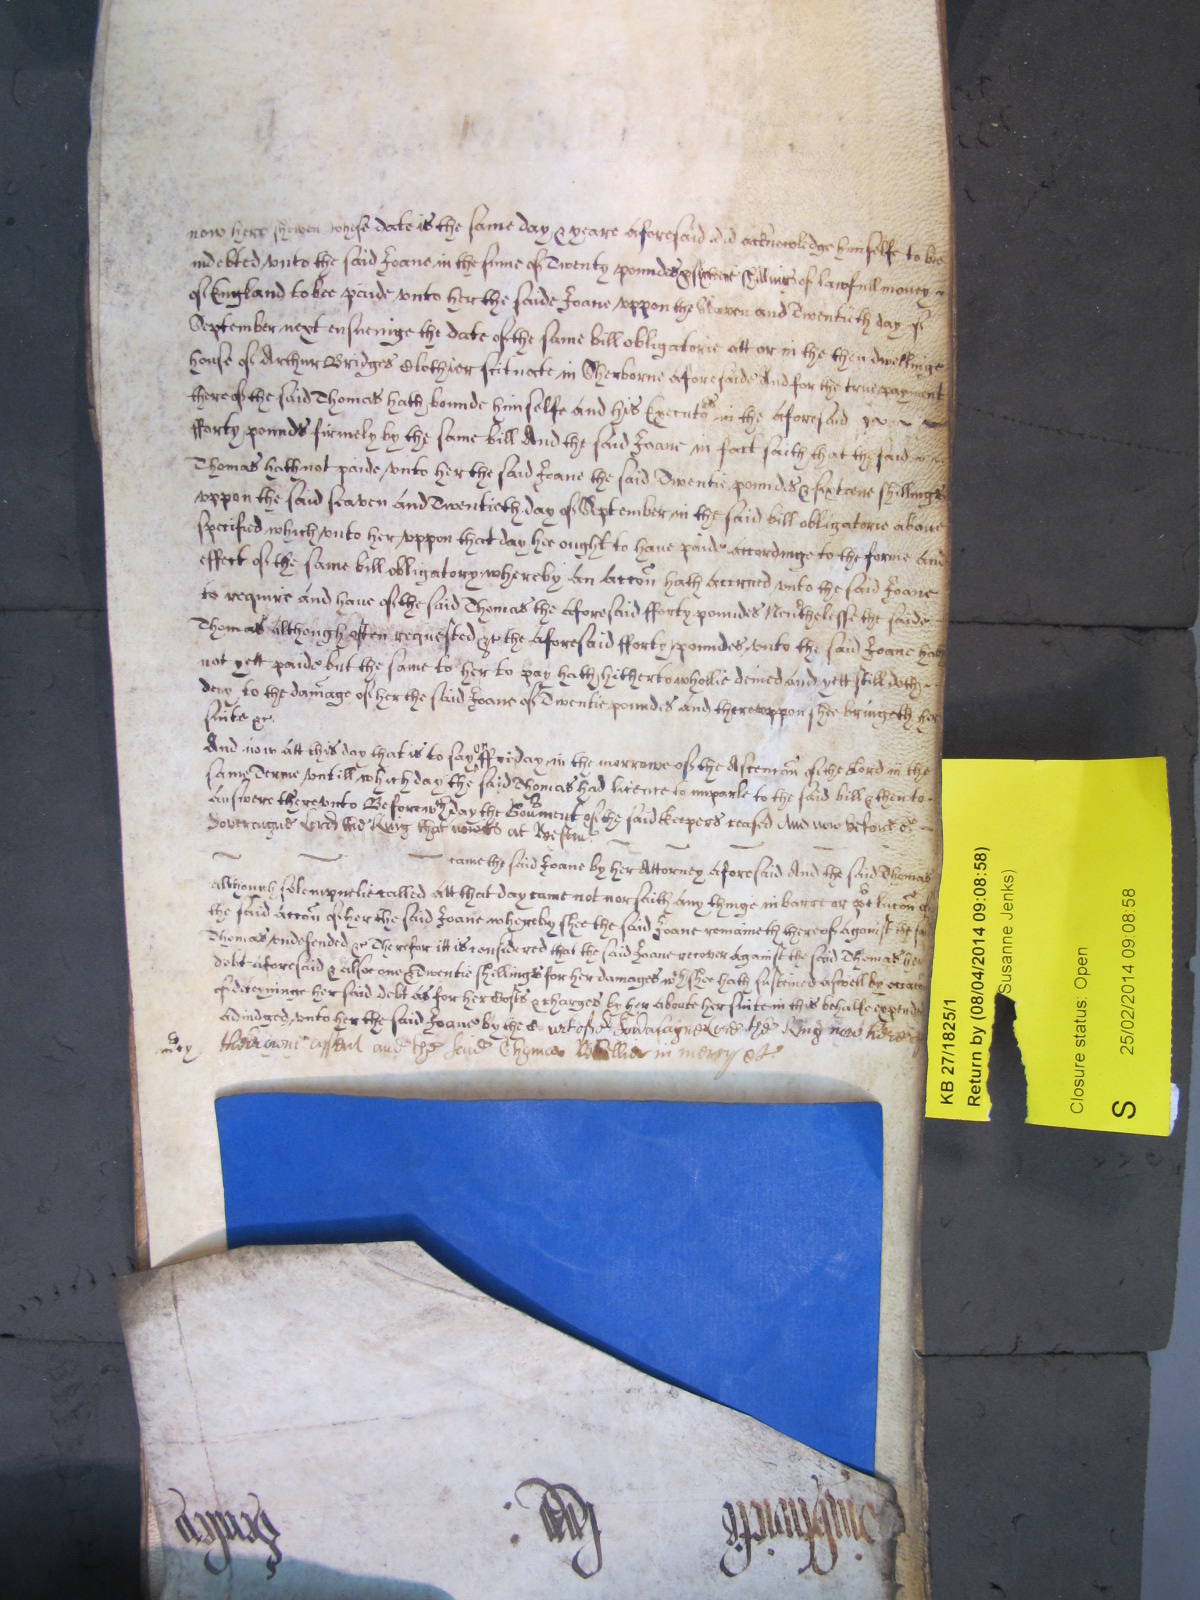 now here shewen whose date is the same day & yeare aforesaid did acknowledge himselfe to bee
indebted unto the said Joane in the sume of Twenty pounds & sixteene shillings of lawfull money
of England to bee paide unto her the saide Joane uppon the Seaven and Twentieth day of
September next ensueinge the date of the same bill obligatorie att or in the then dwellinge
house of Arthur Bridges Clothier scituate in Sherborne aforesaide And for the true payment
thereof the said Thomas hath bounde himselfe and his Executors in the aforesaid
fforty pounds firmely by the same bill And the said Joane in fact saith that the said
Thomas hath not paide unto her the said Joane the said Twentie pounds & sixteene shillings
uppon the said seaven and Twentieth day of September in the said bill obligatorie above
specified which unto her uppon that day hee ought to have paide accordinge to the forme and
effect of the same bill obligatory whereby an accon hath accrued unto the said Joane
to require and have of the said Thomas the aforesaid fforty poundes Neverthelesse the saide
Thomas although often requested &c the aforesaid fforty poundes unto the said Joane hath
not yett paide but the same to her to pay hath hitherto whollie denied and yett still doth
deny to the damage of her the said Joane of Twentie poundes and thereuppon shee bringeth her
suite &c
And now att this day that is to say on ffriday in the morrowe of the Ascencon of the Lord in the
same Terme untill which day the said Thomas had licence to imparle to the said bill & then to
answere thereunto &c Before wch day the Goverment of the said keepers ceased And now before or
Soveraigne Lord the King that now is at Westmr
came the said Joane by her Attorney aforesaid And the said Thomas
although solempnelie called att that day came not nor saith any thinge in barre or preclucon of
the said accon of her the said Joane whereby shee the said Joane remaineth thereof against the said
Thomas undefended &c Therefor itt is considered that the said Joane recover against the said Thomas her
debt aforesaid & alsoe one & Twentie shillings for her damages wch shee hath susteined aswell by occacon
of deteyninge her said debt as for her Costs & charges by her aboute her suite in this behalfe expended
adiudged unto her the said Joane by the Cort of or Soveraigne Lord the King now here
theire owne assent and the said Thomas in mercy &c
mercy
KB 27/1825/1
Return by (08/04/2014 09:08:58)
Susanne Jenks)
Closure status: Open
S
25/02/2014 09:08:58